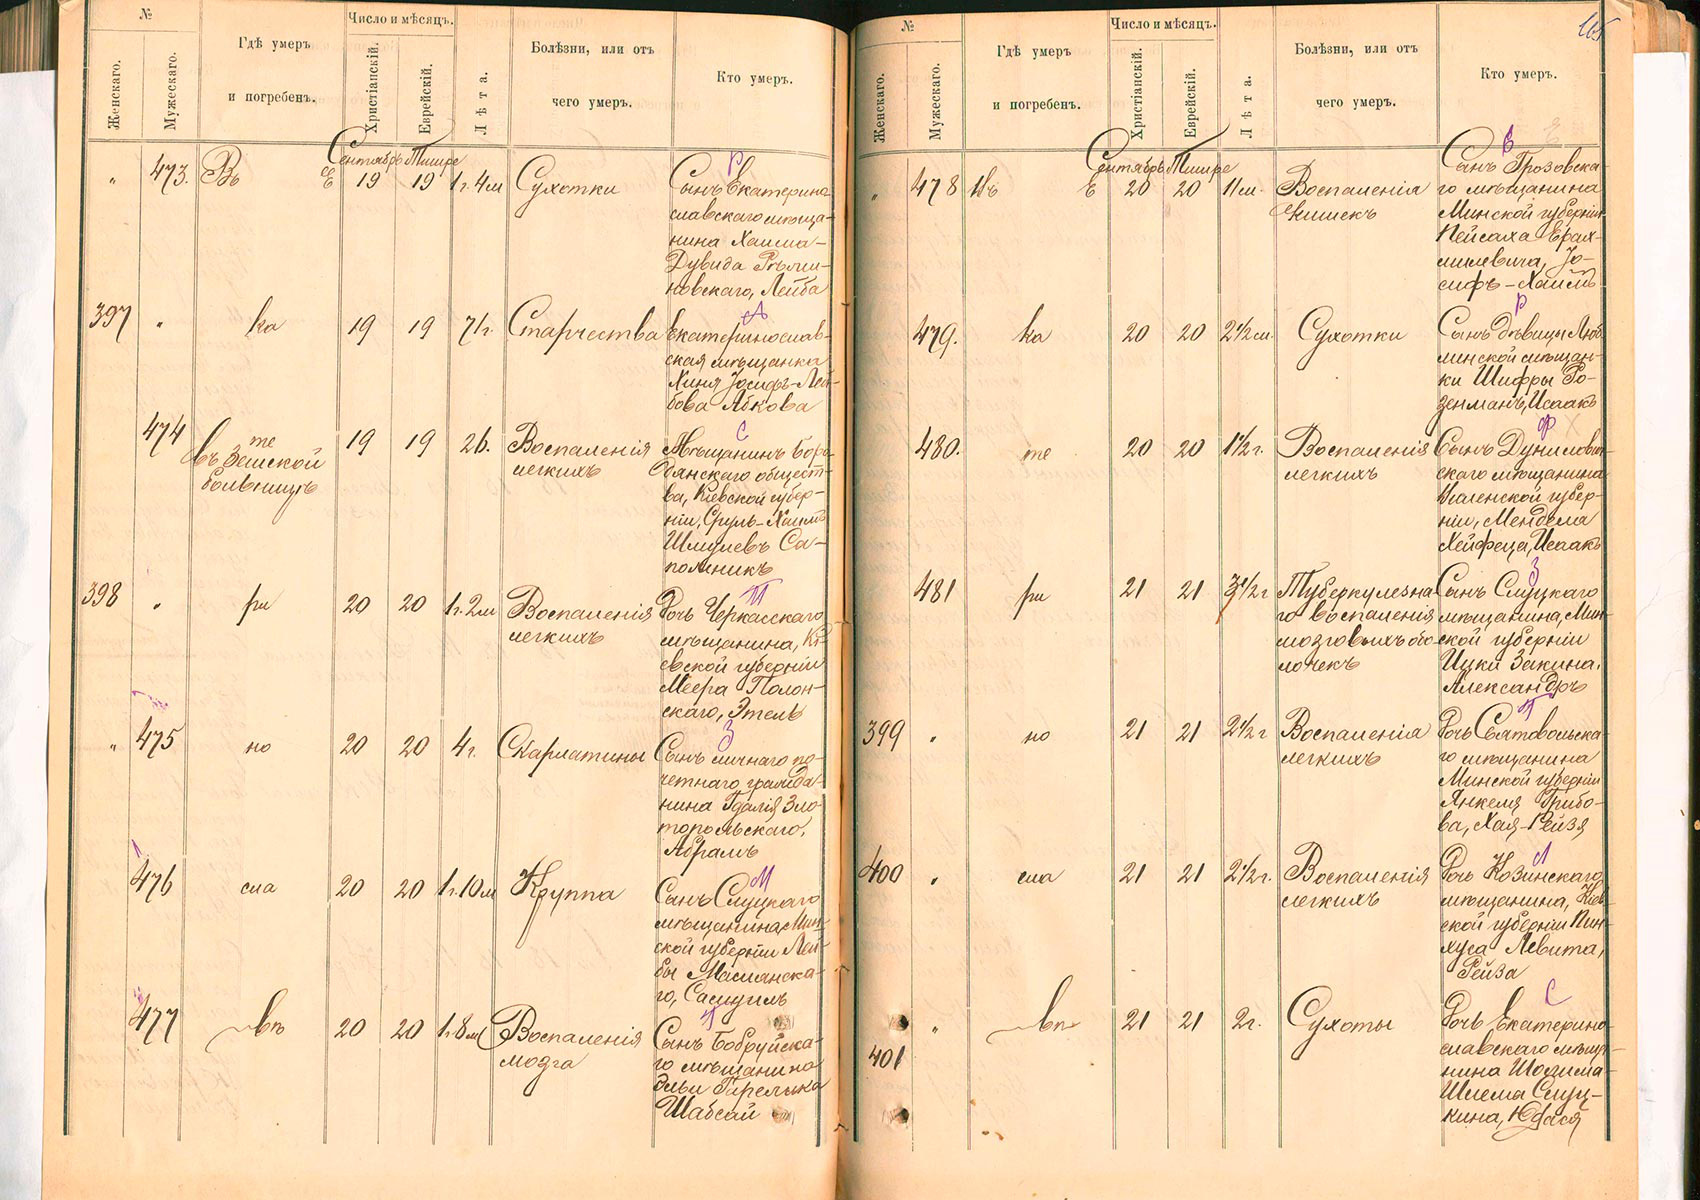 №
Число и мѣсяцъ.
Женскаго.
Мужескаго.
Гдѣ умеръ
и погребенъ.
Христіанскій.
Еврейскій.
Лѣта.
Болѣзни, или отъ
чего умеръ.
Кто умеръ.
Сентябрь Тишре
„ 473. Въ Е 19 19 1 г. 4 м Сухотки
Р
Сынъ Екатерино
славскаго мѣща-
нина Хаима-
Дувида
новскаго, Лейба
397 „ ка 19 19 71 г. Старчества
А
Екатеринослав-
ская мѣщанка
Хиня Іосифъ-Лей-
бова Абкова
474 те 19 19 26. Воспаленія
въ Земской легкихъ
больницѣ
С
Мѣщанинъ Боро-
дянскаго общест-
ва, Кіевской губер-
ніи, Сруль-Хаимъ
Шмулевъ Са-
полникъ
398 „ ри 20 20 1 г. 2 м Воспаленія
легкихъ
П
Дочь Черкасскаго
мѣщанина, Кі
евской губерніи
Меера Полон-
скаго, Этель
„ 475 но 20 20 4 г. Скарлатины
З
Сынъ личнаго по-
четнаго гражда-
нина Гдалія Зло
торольскаго,
Абрамъ
476 сла 20 20 1 г. 10 м Круппа
М
Сынъ Слуцкаго
мѣщанина Мин-
ской губерніи Лей-
бы Маслянска-
го, Самуилъ
477 въ 20 20 1 г. 8 м Воспаленія
мозга
Сынъ Бобруйска-
го мѣщанина
Эльи Гарелика
Шабсай
№
Число и мѣсяцъ.
Женскаго.
Мужескаго.
Гдѣ умеръ
и погребенъ.
Христіанскій.
Еврейскій.
Лѣта.
Болѣзни, или отъ
чего умеръ.
Кто умеръ.
Сентябрь Тишре
„ 478 въ Е 20 20 11 м. Воспаленія
кишекъ
Сынъ Грозовска-
го мѣщанина
Минской губерніи
Пейсаха Ерах-
миелевича, Іо-
сифъ-Хаимъ
479. ка 20 20 2 1/2 м. Сухотки
Р
Сынъ дѣвицы Люб
линской мѣщан-
ки Шифры Ро-
зенманъ, Исаакъ
480. те 20 20 1 1/2 г. Воспаленія
легкихъ
Ф
Сынъ Дуниловит-
скаго мѣщанина
Виленской губер-
ніи, Менделя
Хейфеца, Исаакъ
481 ри 21 21 3 1/2 г Туберкулезна
го воспаленія
мозговыхъ обо
лочекъ
З
Сынъ Слуцкаго
мѣщанина, Мин-
ской губерніи
Ицки Закина,
Александръ
399 „ но 21 21 2 1/2 г Воспаленія
легкихъ
Дочь Святовольска-
го мѣщанина
Минской губерніи
Янкеля Грибо-
ва, Хая-Рейзя
400 „ сла 21 21 2 1/2 г. Воспаленія
легкихъ
Л
Дочь Козинскаго
мѣщанина, Кіев-
ской губерніи Пин-
хуса Левита,
Рейза
„ въ 21 21 2 г. Сухоты
401
С
Дочь Екатерино-
славскаго мѣща-
нина Шолима-
Шлема Слуц-
кина, Юдася